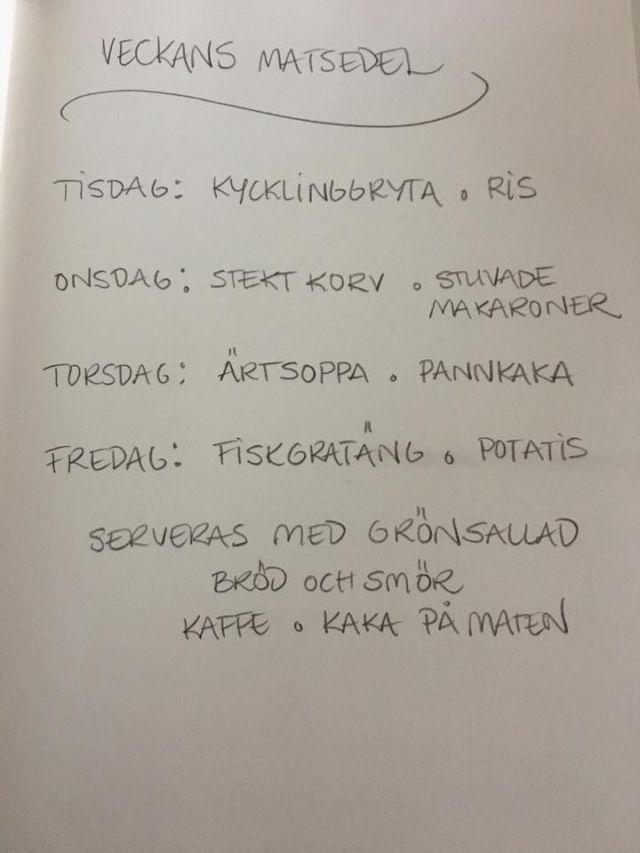 VECKANS MATSEDEL
TISDAG: KYCKLINGGRYTA o RIS
ONSDAG: STEKT KORV o STUVADE
MAKARONER
TORSDAG: ÄRTSOPPA o PANNKAKA
FREDAG: FISKGRATÄNG o POTATIS
SERVERAS MED GRÖNSALLAD
BRÖD OCH SMÖR
KAFFE o KAKA PÅ MATEN